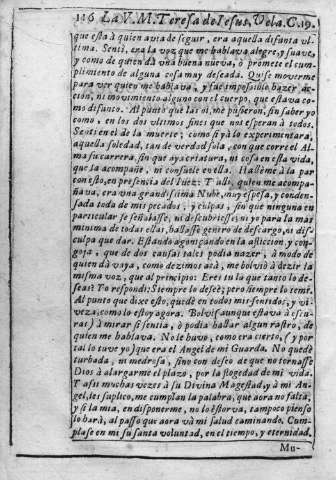 116 La V. M. Teresa de Iesus, Vela. C. 19.
que esta à quien avia de seguir, era aquella difunta vl-
tima. Sentì, era la voz que me hablava alegre, y suave,
y como de quien dà vna buena nueva, ò promete el cum-
plimiento de alguna cosa muy deseada. Quise moverme
para ver quien me hablava, y fue impossible hazer ac-
ciòn, ni movimiento alguno con el cuerpo, que estava co-
mo difunto. Al punto que las oì, me pusieron, sin saber yo
como, en los dos vltimos fines que nos esperan à todos.
Sentì en el de la muerte, como si yà lo experimentara,
aquella soledad, tan de verdad sola, con que corre el Al-
ma su carrera, sin que aya criatura, ni cosa en esta vida,
que la acompañe, ni consuele en ella. Hallème à la par
con esto, en presencia del Iuez: Y allì, quien me acompa-
ñava, era vna grandissima Nube, muy espesa, y conden-
sada toda de mis pecados, y culpas, sin que ninguna en
particular se señalasse, ni descubriesse; ni yo para la mas
minima de todas ellas, hallasse genero de descargo, ni dis-
culpa que dar. Estando agonizando en la afliccion, y con-
goja, que de dos causas tales podia nazer, à modo de
quien dà vaya, como dezimos acà, me bolviò à dezir la
misma voz, que al principio: Eres tu la que tanto lo de-
seas? Yo respondì: Siempre lo deseè; pero siempre lo temì.
Al punto que dixe esto, quedè en todos mis sentidos, y vi-
veza, como lo estoy aora. Bolvì (aunque estava à escu-
ras) à mirar si sentia, ò podia hallar algun rastro, de
quien me hablava. No le huvo, como era cierto, (y por
tal lo tuve yo) que era el Angel de mi Guarda. No quedè
turbada, ni medrosa, sino con deseo de que no tornasse
Dios à alargarme el plazo, por la flogedad de mi vida.
Y assi muchas vezes à su Divina Magestad, y à mi An-
gel, les suplico, me cumplan la palabra, que aora no falta,
y si la mia, en disponerme, no lo estorva, tampoco pienso
lo harà, al passo que aora và mi salud caminando. Cum-
plase en mi su santa voluntad, en el tiempo, y eternidad.
Mu-